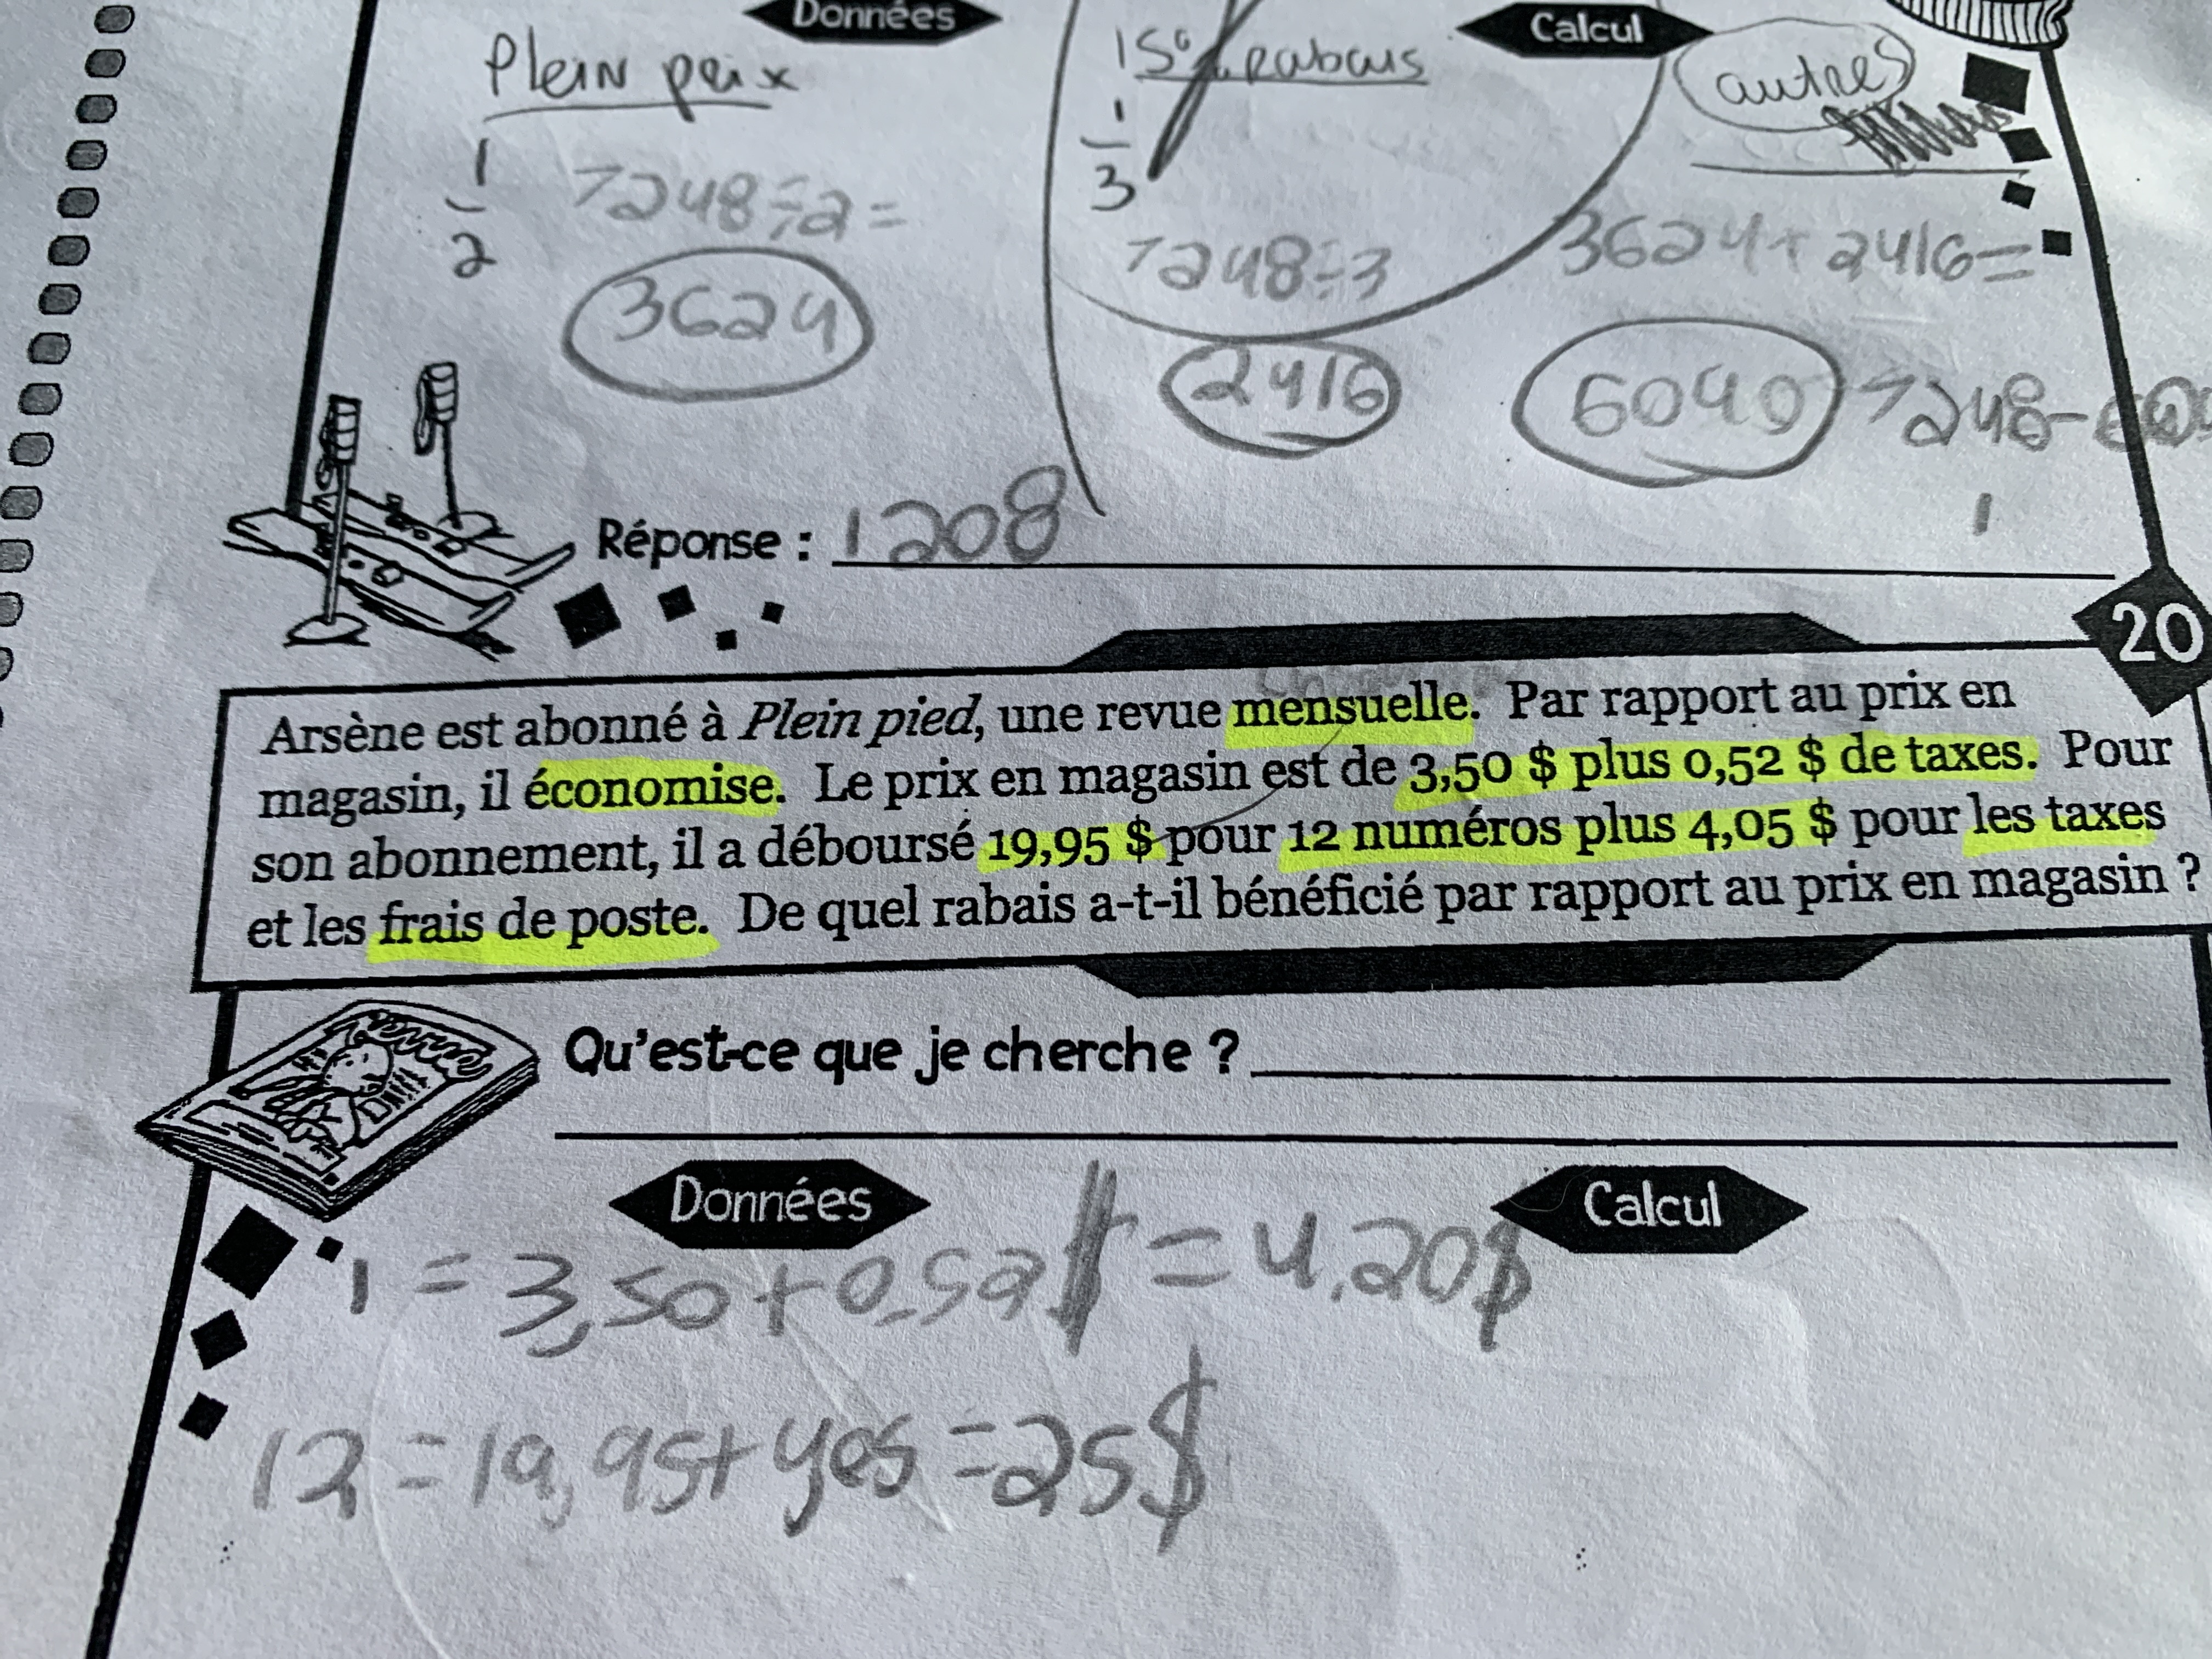 Données
Calcul
Plein prix
15% rabais
autres
1
2
7248÷2=
3624
1
3
7248÷3
2416
3624+2416=
6040
7248-60
1
Réponse : 1208
20
Arsène est abonné à Plein pied, une revue mensuelle. Par rapport au prix en
magasin, il économise. Le prix en magasin est de 3,50 $ plus 0,52 $ de taxes. Pour
son abonnement, il a déboursé 19,95 $ pour 12 numéros plus 4,05 $ pour les taxes
et les frais de poste. De quel rabais a-t-il bénéficié par rapport au prix en magasin ?
Qu'est-ce que je cherche ?
Données
Calcul
1 = 3,50+0,52$ = 4,20$
12 = 19,95+4,05 = 25$